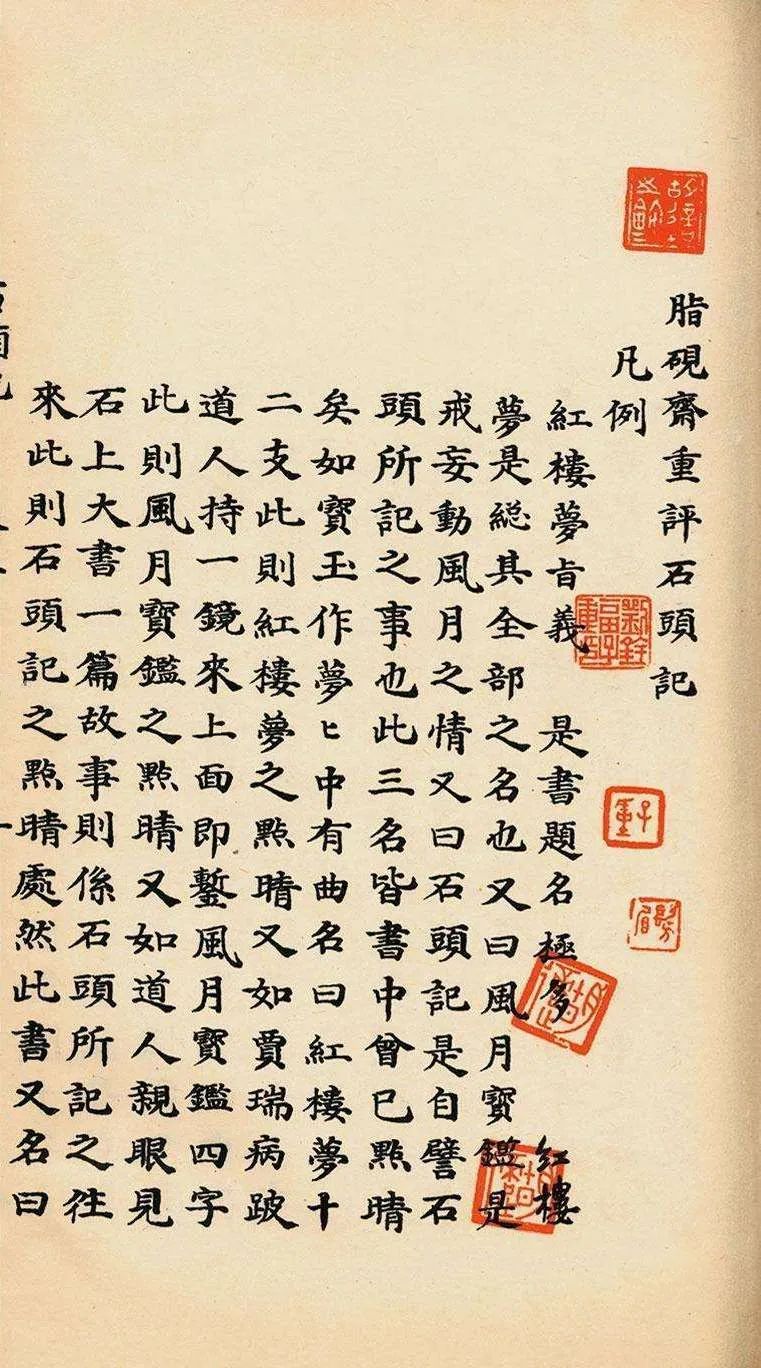 脂硯齋重評石頭記
凡例
紅樓夢旨義　是書題名極多　紅樓
夢是総其全部之名也又曰風月寳鑑是
戒妄動風月之情又曰石頭記是自譬石
頭所記之事也此三名皆書中曾已點晴
矣如寳玉作夢ヒ中有曲名曰紅樓夢十
二支此則紅樓夢之點晴又如賈瑞病跛
道人持一鏡來上面即鏨風月寳鑑四字
此則風月寳鑑之點晴又如道人親眼見
石上大書一篇故事則係石頭所記之往
來此則石頭記之點晴處然此書又名曰
劉銓福子重印
子重
髣眉